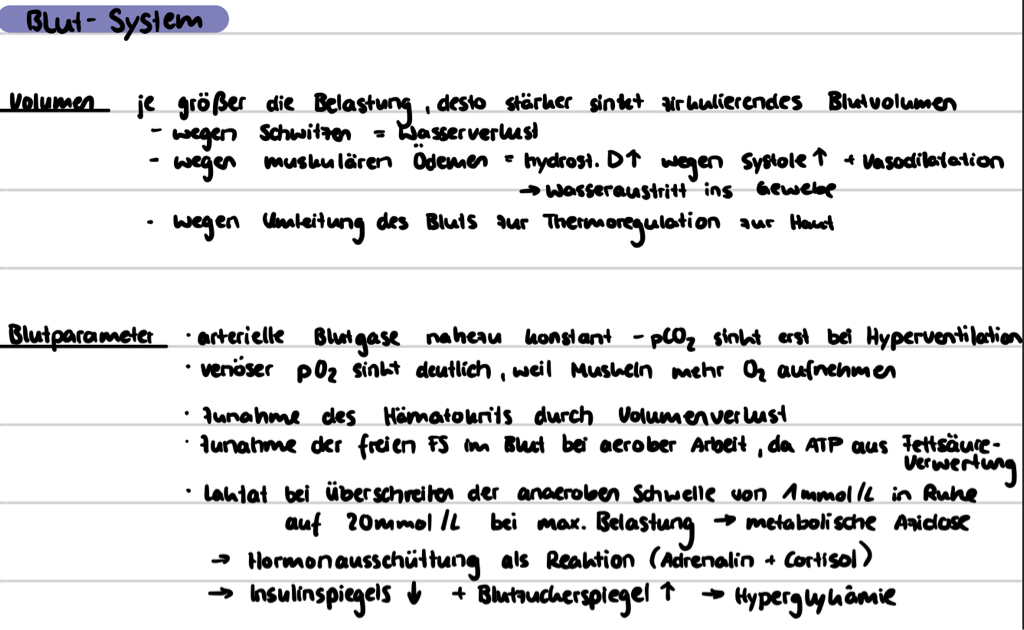 Blut-System
Volumen je größer die Belastung, desto stärker sinkt zirkulierendes Blutvolumen
- wegen Schwitzen = Wasserverlust
- wegen muskulären Ödemen = hydrost. D↑ wegen Systole ↑ + Vasodilatation
→ Wasseraustritt ins Gewebe
- wegen Umleitung des Bluts zur Thermoregulation zur Haut
Blutparameter · arterielle Blutgase nahezu konstant - pCO₂ sinkt erst bei Hyperventilation
· venöser pO₂ sinkt deutlich, weil Muskeln mehr O₂ aufnehmen
· Zunahme des Hämatokrits durch Volumenverlust
· Zunahme der freien FS im Blut bei aerober Arbeit, da ATP aus Fettsäure-
Verwertung
· Laktat bei Überschreiten der anaeroben Schwelle von 1mmol/L in Ruhe
auf 20mmol/L bei max. Belastung → metabolische Azidose
→ Hormonausschüttung als Reaktion (Adrenalin + Cortisol)
→ Insulinspiegels ↓ + Blutzuckerspiegel ↑ → Hyperglykämie